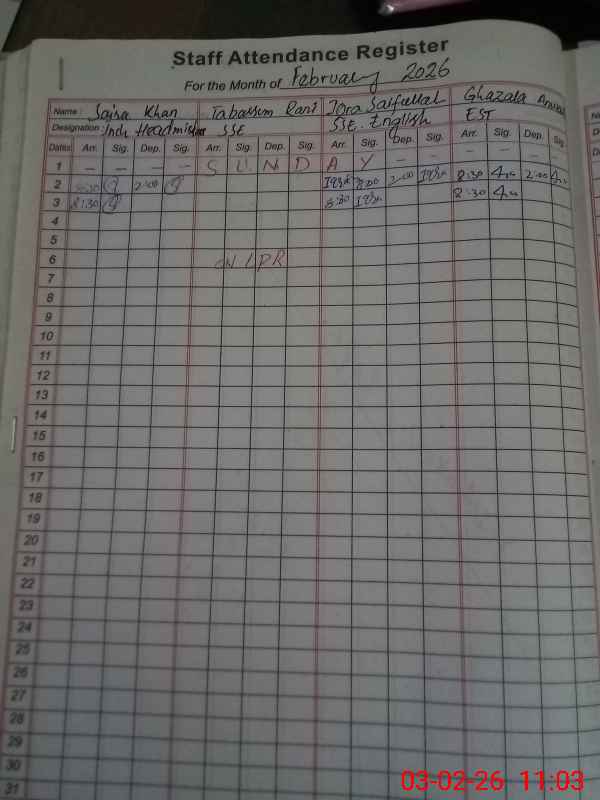 Staff Attendance Register
For the Month of February 2026
Name: Saira Khan Tabassum Rani Iqra Saifullah Ghazala
Designation: Inch Headmistress SSE SSE. English EST
Dates Arr. Sig. Dep. Sig. Arr. Sig. Dep. Sig. Arr. Sig. Dep. Sig. Arr. Sig. Dep. Sig.
1 — — — — S U N D A Y — — — — — —
2 8:30 2:00 Iqra 8:00 2:00 Iqra 8:30 2:00
3 8:30 8:30 Iqra 8:30
4
5
6 ON LPR
7
8
9
10
11
12
13
14
15
16
17
18
19
20
21
22
23
24
25
26
27
28
29
30
31
03-02-26 11:03